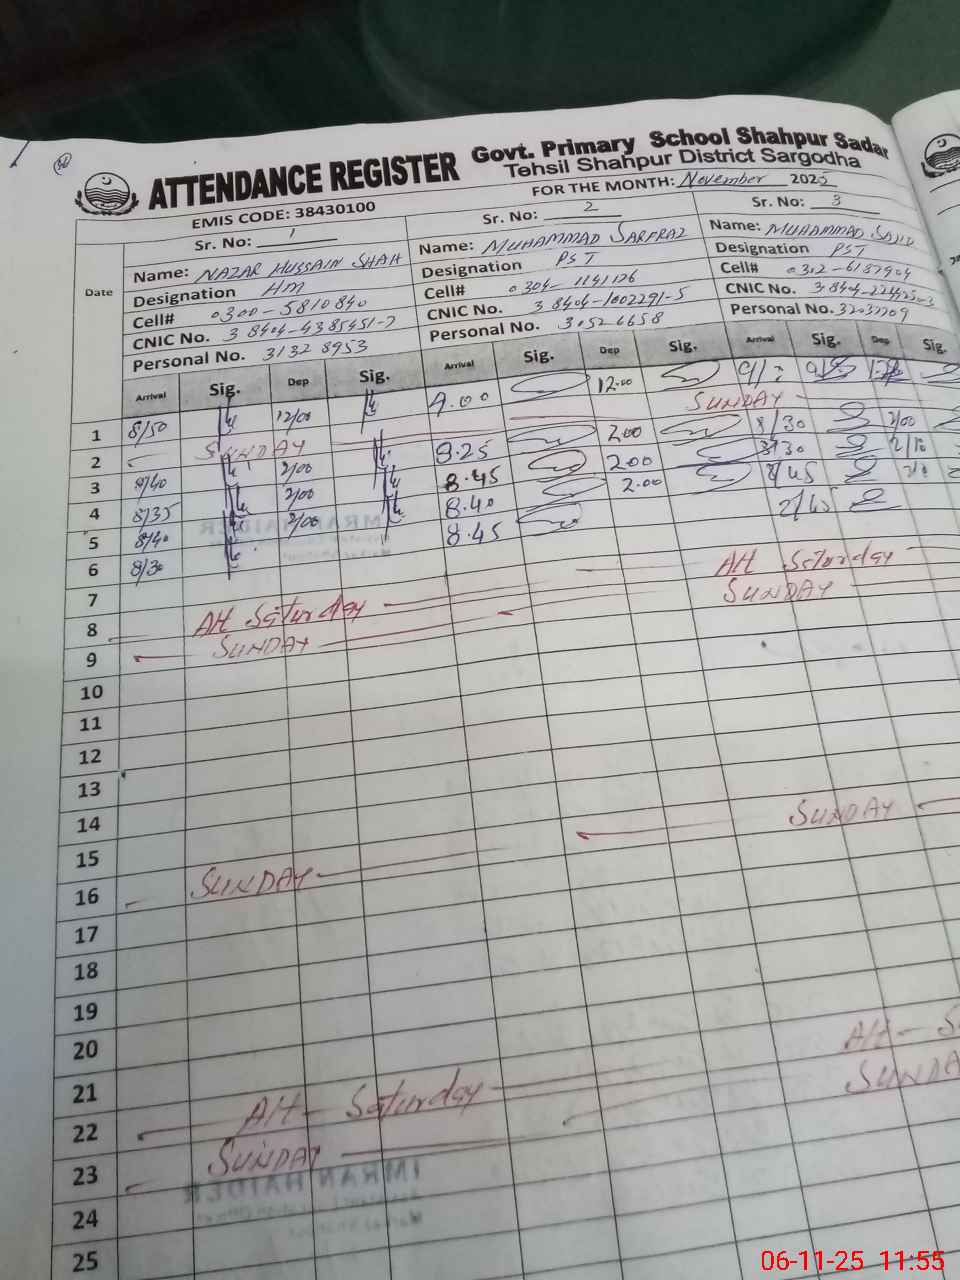 ATTENDANCE REGISTER
Govt. Primary School Shahpur Sadar
Tehsil Shahpur District Sargodha
EMIS CODE: 38430100
FOR THE MONTH: November 2025
Sr. No: 1
Sr. No: 2
Sr. No: 3
Date
Name: NAZAR HUSSAIN SHAH
Designation HM
Cell# 0300-5810840
CNIC No. 38404-4385451-7
Personal No. 31328953
Name: MUHAMMAD SARFRAZ
Designation PST
Cell# 0304-1141126
CNIC No. 38404-1002291-5
Personal No. 30526658
Name: MUHAMMAD SAJID
Designation PST
Cell# 0302-6187904
CNIC No.
Personal No. 32037709
Arrival Sig. Dep Sig. Arrival Sig. Dep Sig. Arrival Sig. Dep Sig.
1 8/50 12/00 9.00 12.00
2 SUNDAY SUNDAY
3 8/40 2/00 8.25 2.00 8/30 2/00
4 8/35 2/00 8.45 2.00 8/30 2/10
5 8/40 2/00 8.40 2.00 8/45
6 8/30 8.45
7
8 AH Saturday AH Saturday
9 SUNDAY SUNDAY
10
11
12
13
14
15
16 SUNDAY SUNDAY
17
18
19
20
21
22 AH - Saturday AH -
23 SUNDAY
24
25
IMRAN HAIDER
06-11-25 11:55